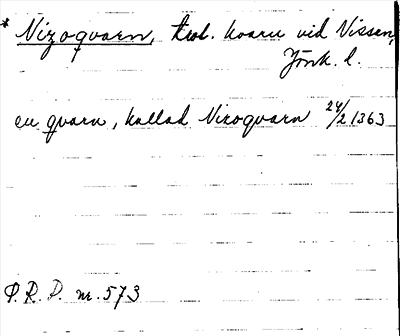 * Nizoqvarn, trol. kvarn vid Nissan,
Jönk. l.
en qvarn, kallad Nizoqvarn 24/2 1363
P. R. P. nr. 573